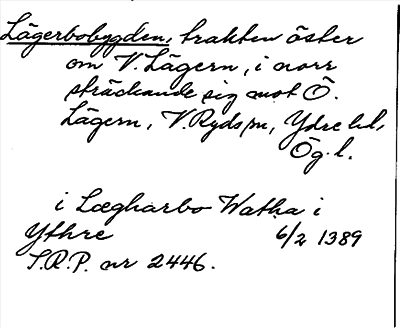 Lägerbobygden, trakten öster
om V. Lägern, i norr
sträckande sig mot Ö.
Lägern, V. Ryds sn, Ydre hd,
Ög. l.
i Lægharbo Watha i
Ythre 6/2 1389
S.R.P. nr 2446.